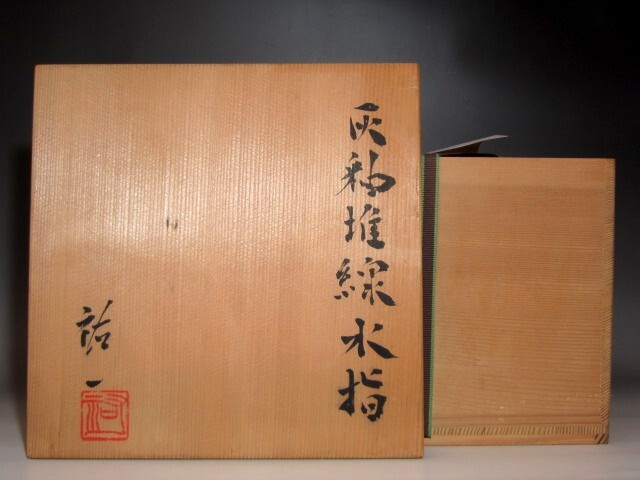 灰釉堆線水指
祐一